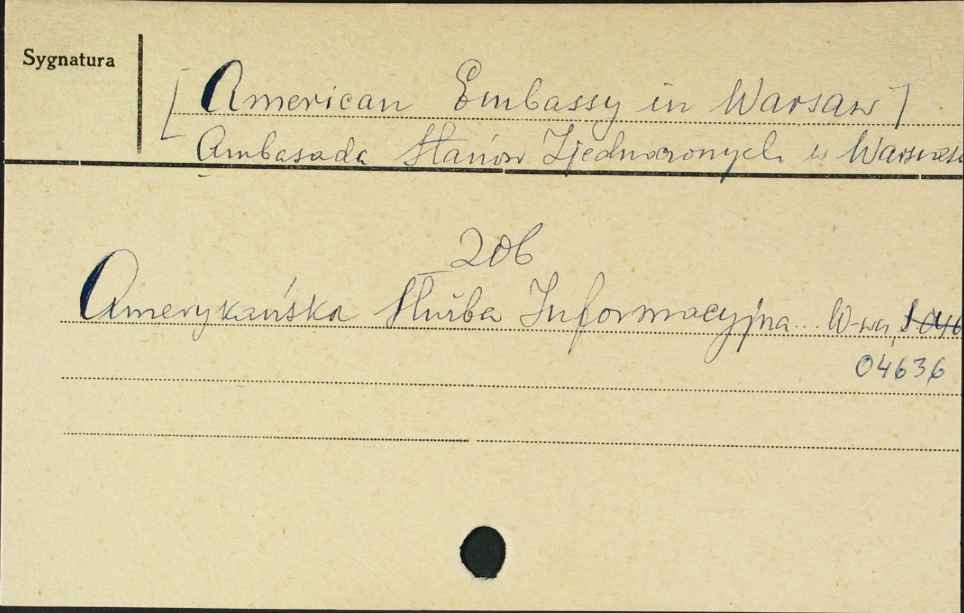 Sygnatura
[American Embassy in Warsaw]
Ambasada Stanów Zjednoczonych w
206
Amerykańska Służba Informacyjna... W-wa,
04636